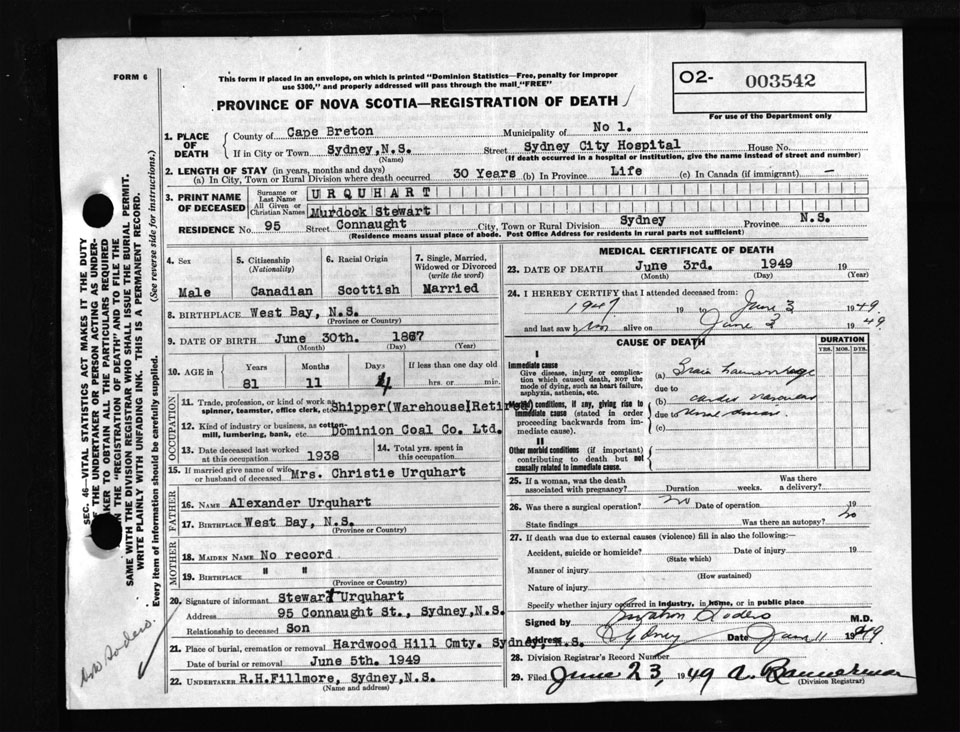 FORM 6
This form if placed in an envelope, on which is printed "Dominion Statistics—Free, penalty for improper
use $300," and properly addressed will pass through the mail "FREE"
PROVINCE OF NOVA SCOTIA—REGISTRATION OF DEATH
O2- 003542
For use of the Department only
SEC. 46—VITAL STATISTICS ACT MAKES IT THE DUTY
OF THE UNDERTAKER OR PERSON ACTING AS UNDER-
TAKER TO OBTAIN ALL THE PARTICULARS REQUIRED
IN THE "REGISTRATION OF DEATH" AND TO FILE THE
SAME WITH THE DIVISION REGISTRAR WHO SHALL ISSUE THE BURIAL PERMIT.
WRITE PLAINLY WITH UNFADING INK. THIS IS A PERMANENT RECORD.
Every item of information should be carefully supplied. (See reverse side for instructions.)
1. PLACE OF DEATH
County of Cape Breton Municipality of No 1.
If in City or Town Sydney,N.S. Street Sydney City Hospital House No.
(Name) (If death occurred in a hospital or institution, give the name instead of street and number)
2. LENGTH OF STAY (in years, months and days)
(a) In City, Town or Rural Division where death occurred 30 Years (b) In Province Life (c) In Canada (if immigrant) -
3. PRINT NAME OF DECEASED
Surname or Last Name URQUHART
All Given or Christian Names Murdock Stewart
RESIDENCE No. 95 Street Connaught City, Town or Rural Division Sydney Province N.S.
(Residence means usual place of abode. Post Office Address for residents in rural parts not sufficient)
4. Sex 5. Citizenship (Nationality) 6. Racial Origin 7. Single, Married, Widowed or Divorced (write the word)
Male Canadian Scottish Married
8. BIRTHPLACE West Bay, N.S.
(Province or Country)
9. DATE OF BIRTH June 30th. 1867
(Month) (Day) (Year)
10. AGE in Years Months Days If less than one day old
81 11 4 hrs. or min.
OCCUPATION
11. Trade, profession, or kind of work as spinner, teamster, office clerk, etc. Shipper(Warehouse)Retired)
12. Kind of industry or business, as cotton-mill, lumbering, bank, etc. Dominion Coal Co. Ltd.
13. Date deceased last worked at this occupation 1938 14. Total yrs. spent in this occupation
15. If married give name of wife or husband of deceased Mrs. Christie Urquhart
FATHER
16. NAME Alexander Urquhart
17. BIRTHPLACE West Bay, N.S.
(Province or Country)
MOTHER
18. MAIDEN NAME No record
19. BIRTHPLACE " "
(Province or Country)
20. Signature of informant Stewart Urquhart
Address 95 Connaught St., Sydney,N.S.
Relationship to deceased Son
21. Place of burial, cremation or removal Hardwood Hill Cmty. Sydney, N.S.
Date of burial or removal June 5th. 1949
22. UNDERTAKER R.H.Fillmore, Sydney,N.S.
(Name and address)
MEDICAL CERTIFICATE OF DEATH
23. DATE OF DEATH June 3rd. 1949 19
(Month) (Day) (Year)
24. I HEREBY CERTIFY that I attended deceased from:
1947 19 to June 3 1949.
and last saw him alive on June 3 1949
CAUSE OF DEATH
DURATION
YRS. MOS. DYS.
I
Immediate cause
Give disease, injury or complication which caused death, not the mode of dying, such as heart failure, asphyxia, asthenia, etc.
(a) Brain haemorrhage
due to
Morbid conditions, if any, giving rise to immediate cause (stated in order proceeding backwards from immediate cause).
(b) cardio vascular
due to renal disease
(c)
II
Other morbid conditions (if important) contributing to death but not causally related to immediate cause.
25. If a woman, was the death associated with pregnancy? Duration weeks. Was there a delivery?
26. Was there a surgical operation? no Date of operation 19
State findings Was there an autopsy? no
27. If death was due to external causes (violence) fill in also the following:—
Accident, suicide or homicide? Date of injury 19
(State which)
Manner of injury
(How sustained)
Nature of injury
Specify whether injury occurred in industry, in home, or in public place
Signed by M.D.
Address Sydney Date June 11 1949
28. Division Registrar's Record Number
29. Filed June 23, 1949 A. Bannerman
(Division Registrar)